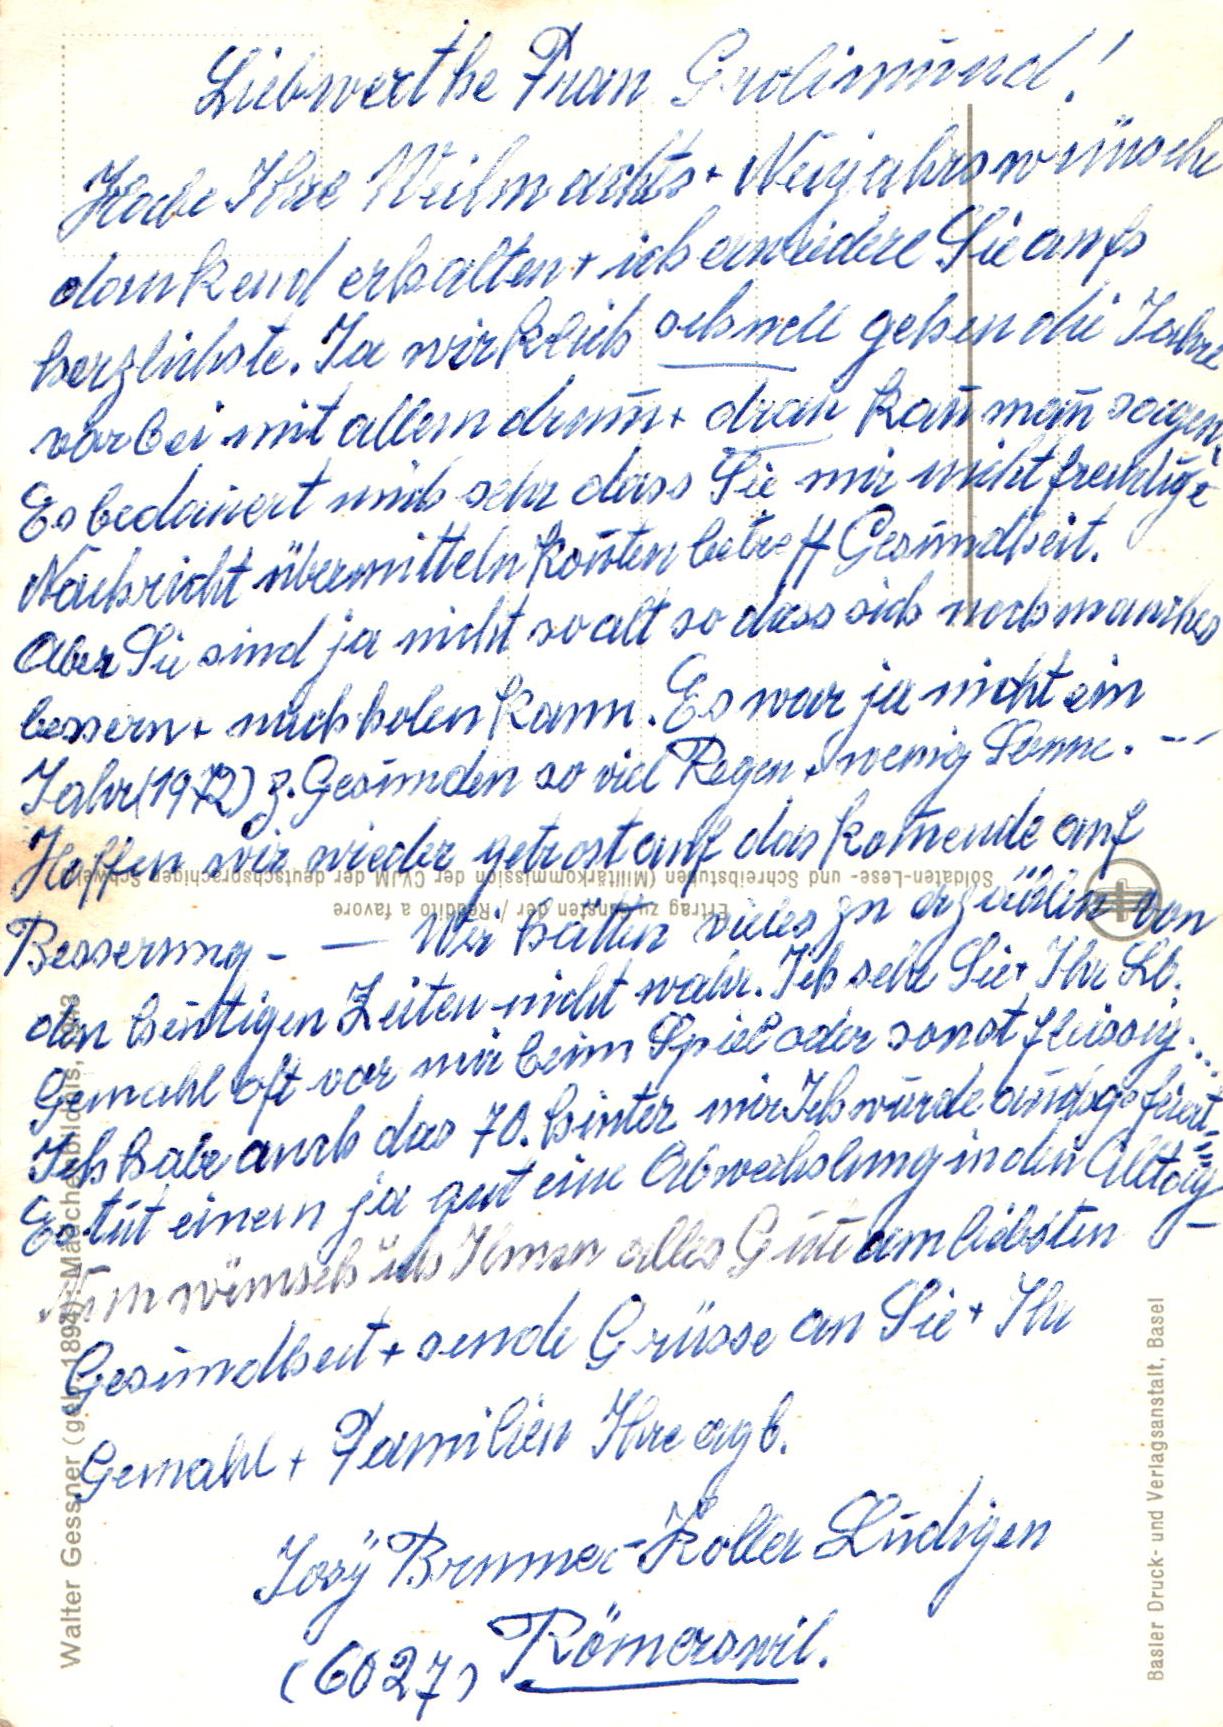 Liebwerthe Frau Grolimund!
Habe Ihre Weihnachts + Neujahrswünsche
dankend erhalten + ich erwiedere Sie aufs
herzlichste. Ja wirklich schnell gehen die Jahre
vorbei mit allem drum + dran kan̄ man̄ sagen.
Es bedauert mich sehr dass Sie mir nicht freudige
Nachricht übermitteln kon̄ten betreff Gesundheit.
Aber Sie sind ja nicht so alt so dass sich noch manches
bessern + nachholen kann. Es war ja nicht ein
Jahr (1972) z. Gesunden so viel Regen + wenig Sonne. --
Hoffen wir wieder getrost auf das kom̄ende auf
Besserung - — Wir hätten vieles zu erzählen von
den heutigen Zeiten nicht wahr. Ich sehe Sie + Ihr Lb.
Gemahl oft vor mir beim Spiel oder sonst fleissig...
Ich habe auch das 70. hinter mir Ich wurde auch gefeiert.
Es tut einem ja gut eine Abwechslung in den Alltag -
Nun wünsch ich Ihnen alles Gute am liebsten
Gesundheit + sende Grüsse an Sie + Ihr
Gemahl + Familien Ihre agb.
Josÿ Brunner-Koller Ludigen
(6027) Römerswil.
Soldaten-Lese- und Schreibstuben (Militärkommission der CVJM der deutschsprachigen Schweiz)
Ertrag zu Gunsten der / Reddito a favore
Walter Gessner (geb. 1894): Mädchenbildnis,
Basler Druck- und Verlagsanstalt, Basel